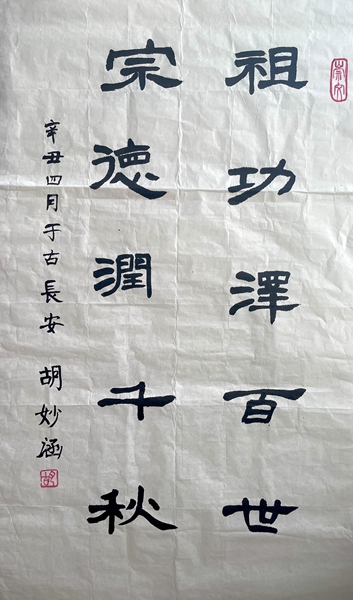 祖功澤百世
宗德潤千秋
辛丑四月于古長安 胡妙涵